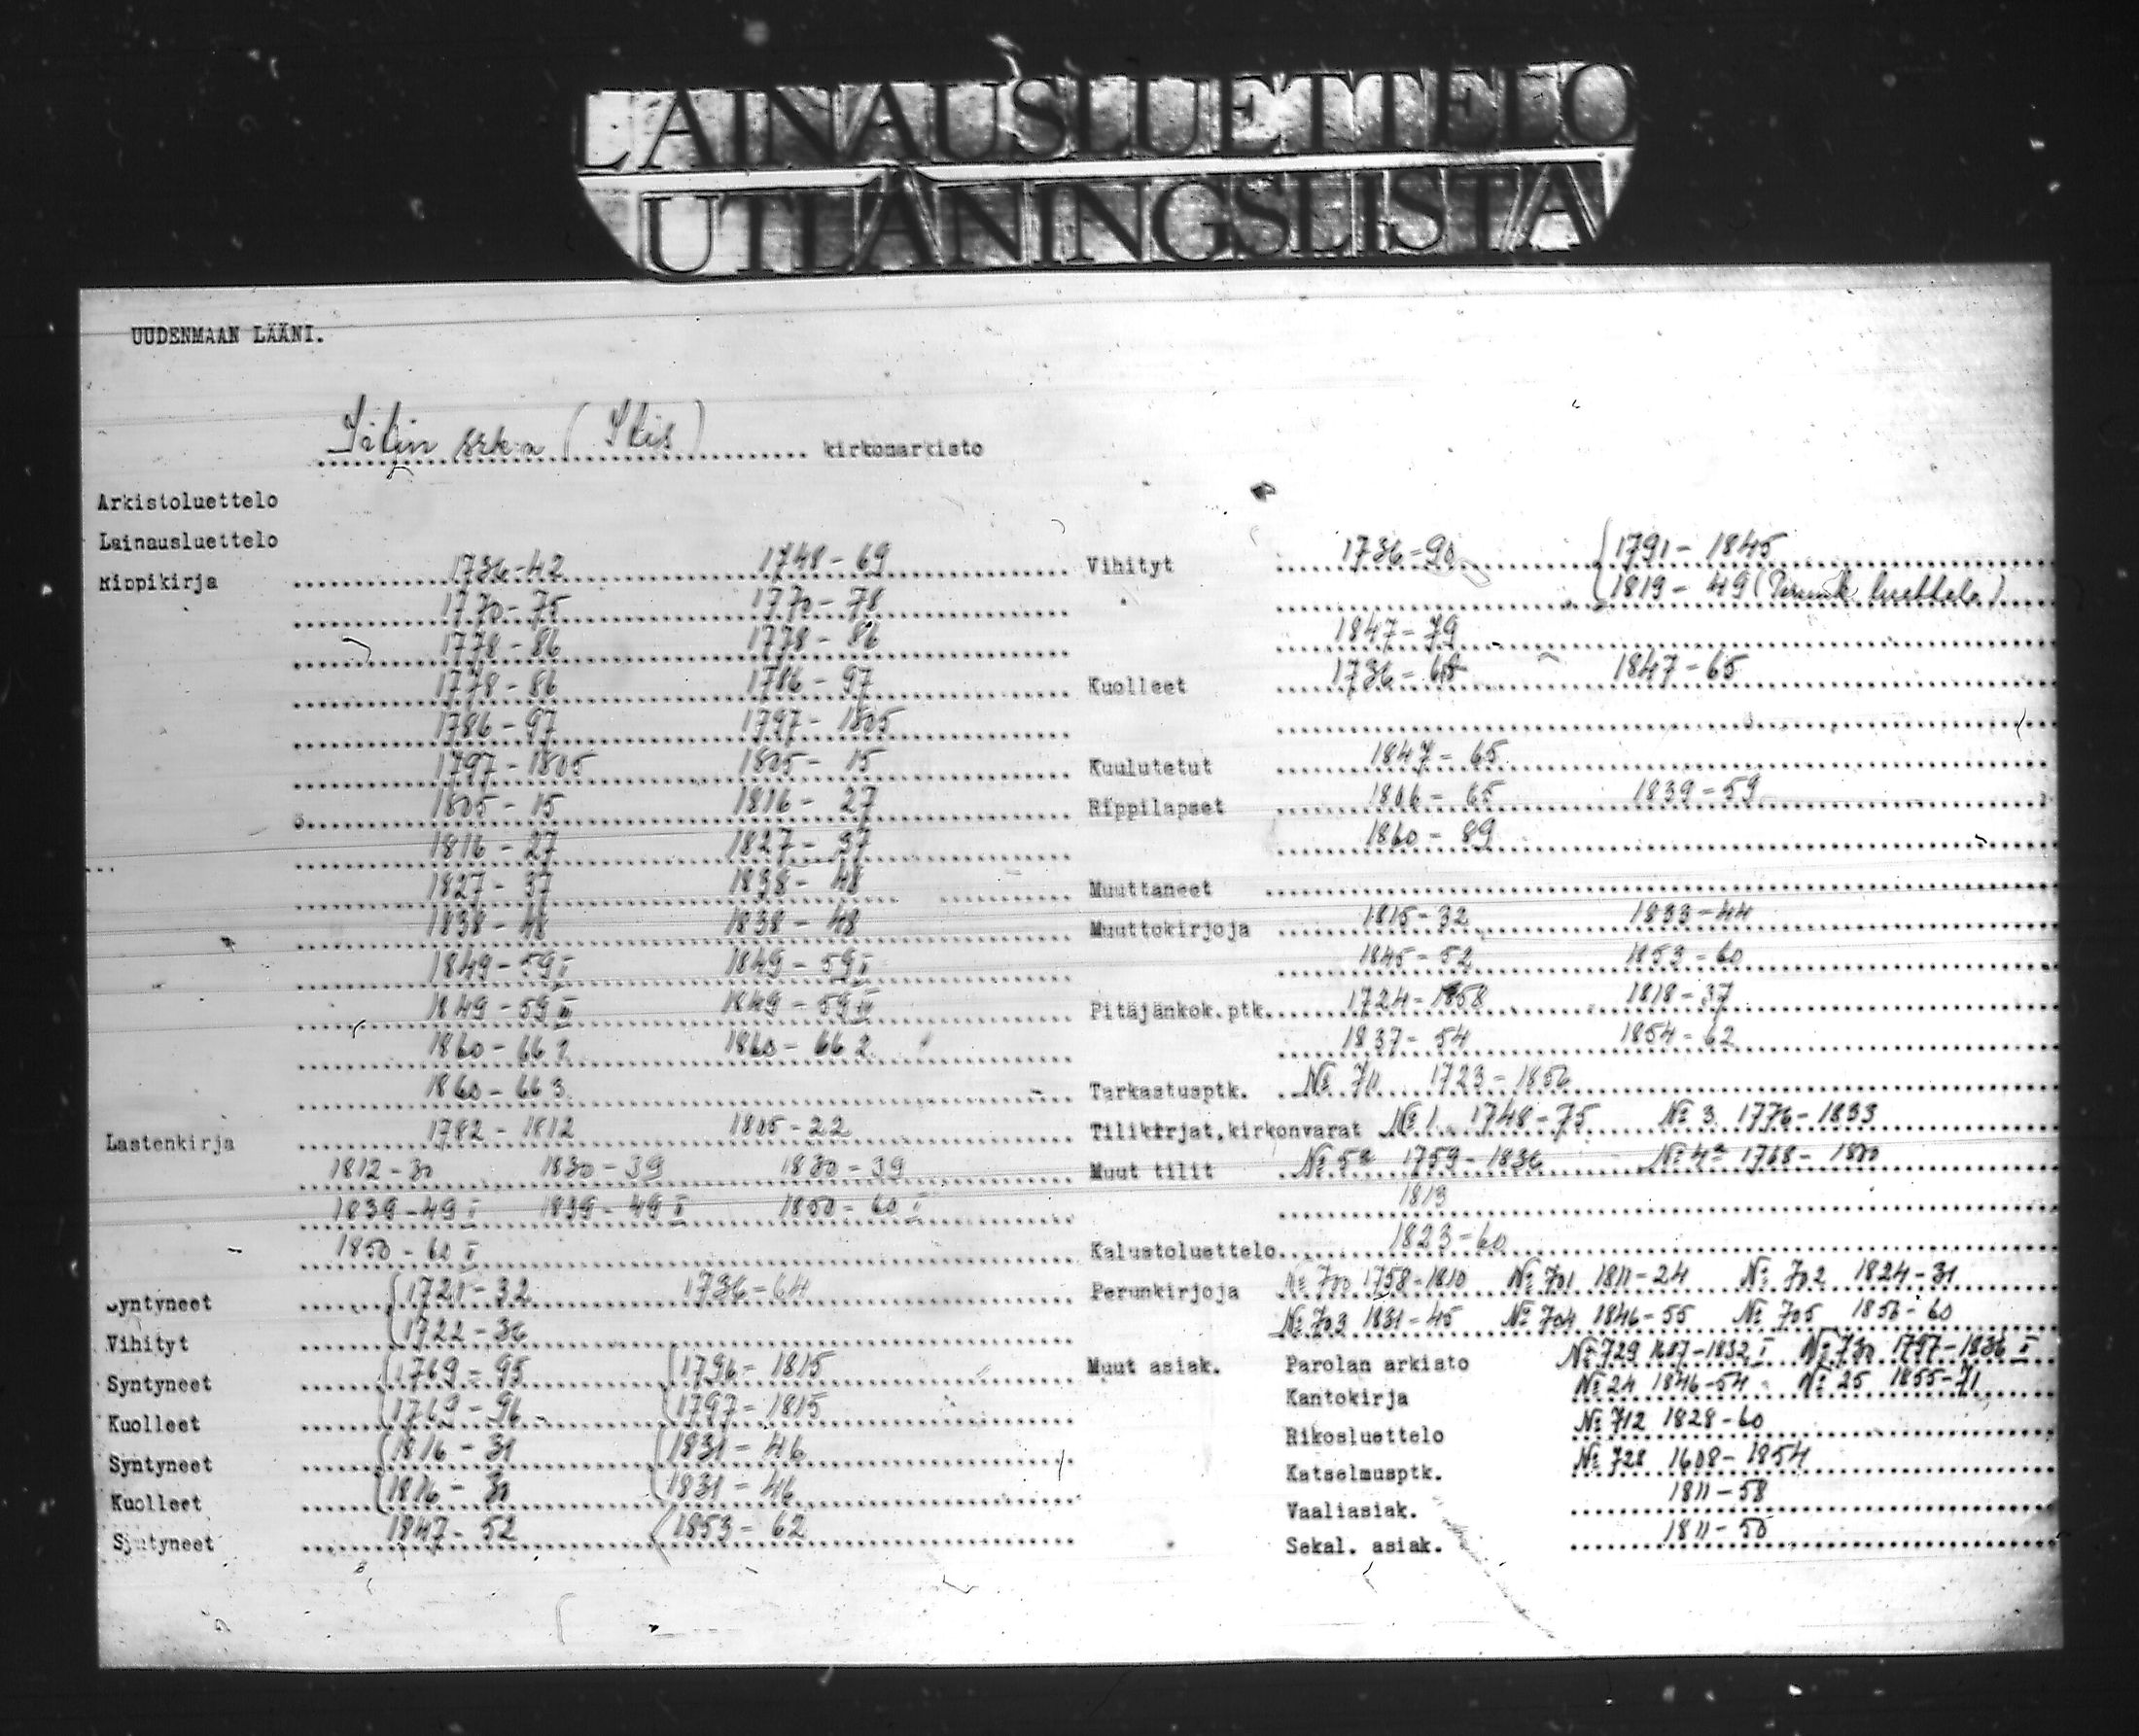 LAINAUSLUETTELO
UTLÅNINGSLISTA
UUDENMAAN LÄÄNI.
Iitin srk:n (Itis) kirkonarkisto
Arkistoluettelo
Lainausluettelo
Rippikirja 1736-42 1748-69
1770-75 1770-78
1778-86 1778-86
1778-86 1786-97
1786-97 1797-1805
1797-1805 1805-15
1805-15 1816-27
1816-27 1827-37
1827-37 1838-48
1838-48 1838-48
1849-59 I 1849-59 I
1849-59 II 1849-59
1860-66 1860-66 2
1860-66 3
Lastenkirja 1782-1812 1805-22
1812-30 1830-39 1830-39
1839-49 I 1839-49 I 1850-60 I
1850-60 I
Syntyneet 1721-32 1736-64
Vihityt 1722-36
Syntyneet 1769-95 1796-1815
Kuolleet 1769-96 1797-1815
Syntyneet 1816-31 1831-46
Kuolleet 1816-30 1831-46
Syntyneet 1847-52 1853-62
Vihityt 1736-90 1791-1845
1819-49 (luettelo)
1847-79
Kuolleet 1736-68 1847-65
Kuulutetut 1847-65
Rippilapset 1806-65 1839-59
1860-89
Muuttaneet
Muuttokirjoja 1815-32 1833-44
1845-52 1853-60
Pitäjänkok.ptk. 1724-1858 1818-37
1837-54 1854-62
Tarkastusptk. № 711 1723-1856
Tilikirjat,kirkonvarat № 1 1748-75 № 3 1776-1833
Muut tilit № 5a 1759-1836 № 4a 1768-1800
1813
Kalustoluettelo 1823-60
Perunkirjoja № 700 1758-1810 № 701 1811-24 № 702 1824-31
№ 703 1831-45 № 704 1846-55 № 705 1856-60
Muut asiak. Parolan arkisto № 729 1687-1832 I № 730 1797-1836 II
Kantokirja № 24 1846-54 № 25 1855-71
Rikosluettelo № 712 1828-60
Katselmusptk. № 728 1608-1854
Vaaliasiak. 1811-58
Sekal. asiak. 1811-50